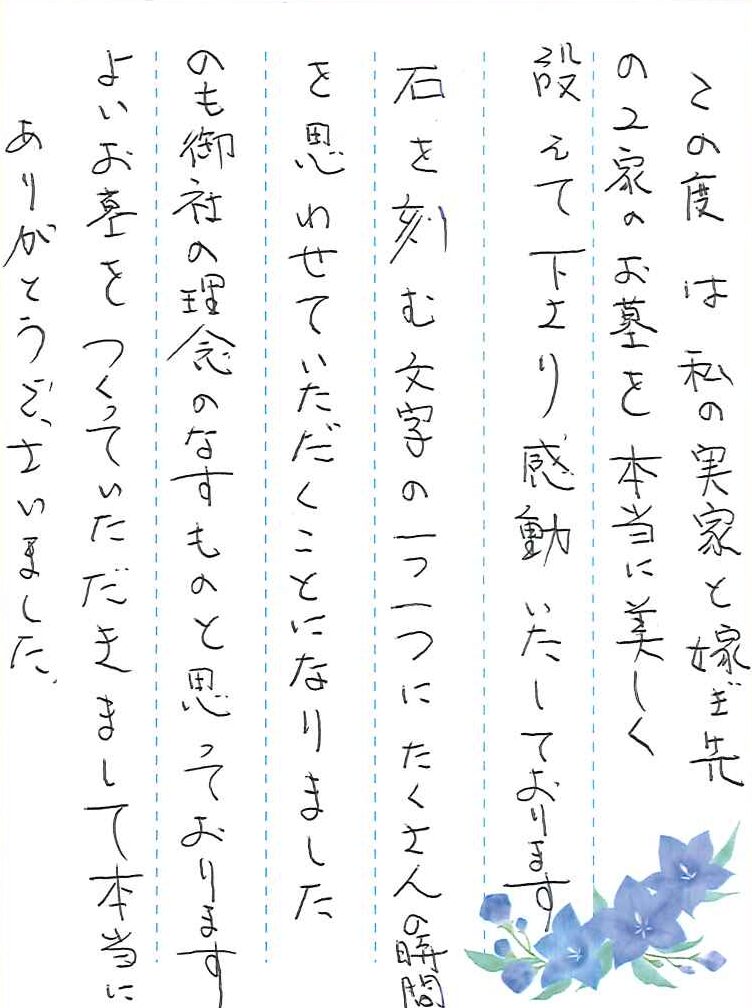 この度は私の実家と嫁ぎ先
の2家のお墓を本当に美しく
設えて下さり感動いたしております
石を刻む文字の一つ一つにたくさんの時間
を思わせていただくことになりました
のも御社の理念のなすものと思っております
よいお墓をつくっていただきまして本当に
ありがとうございました。